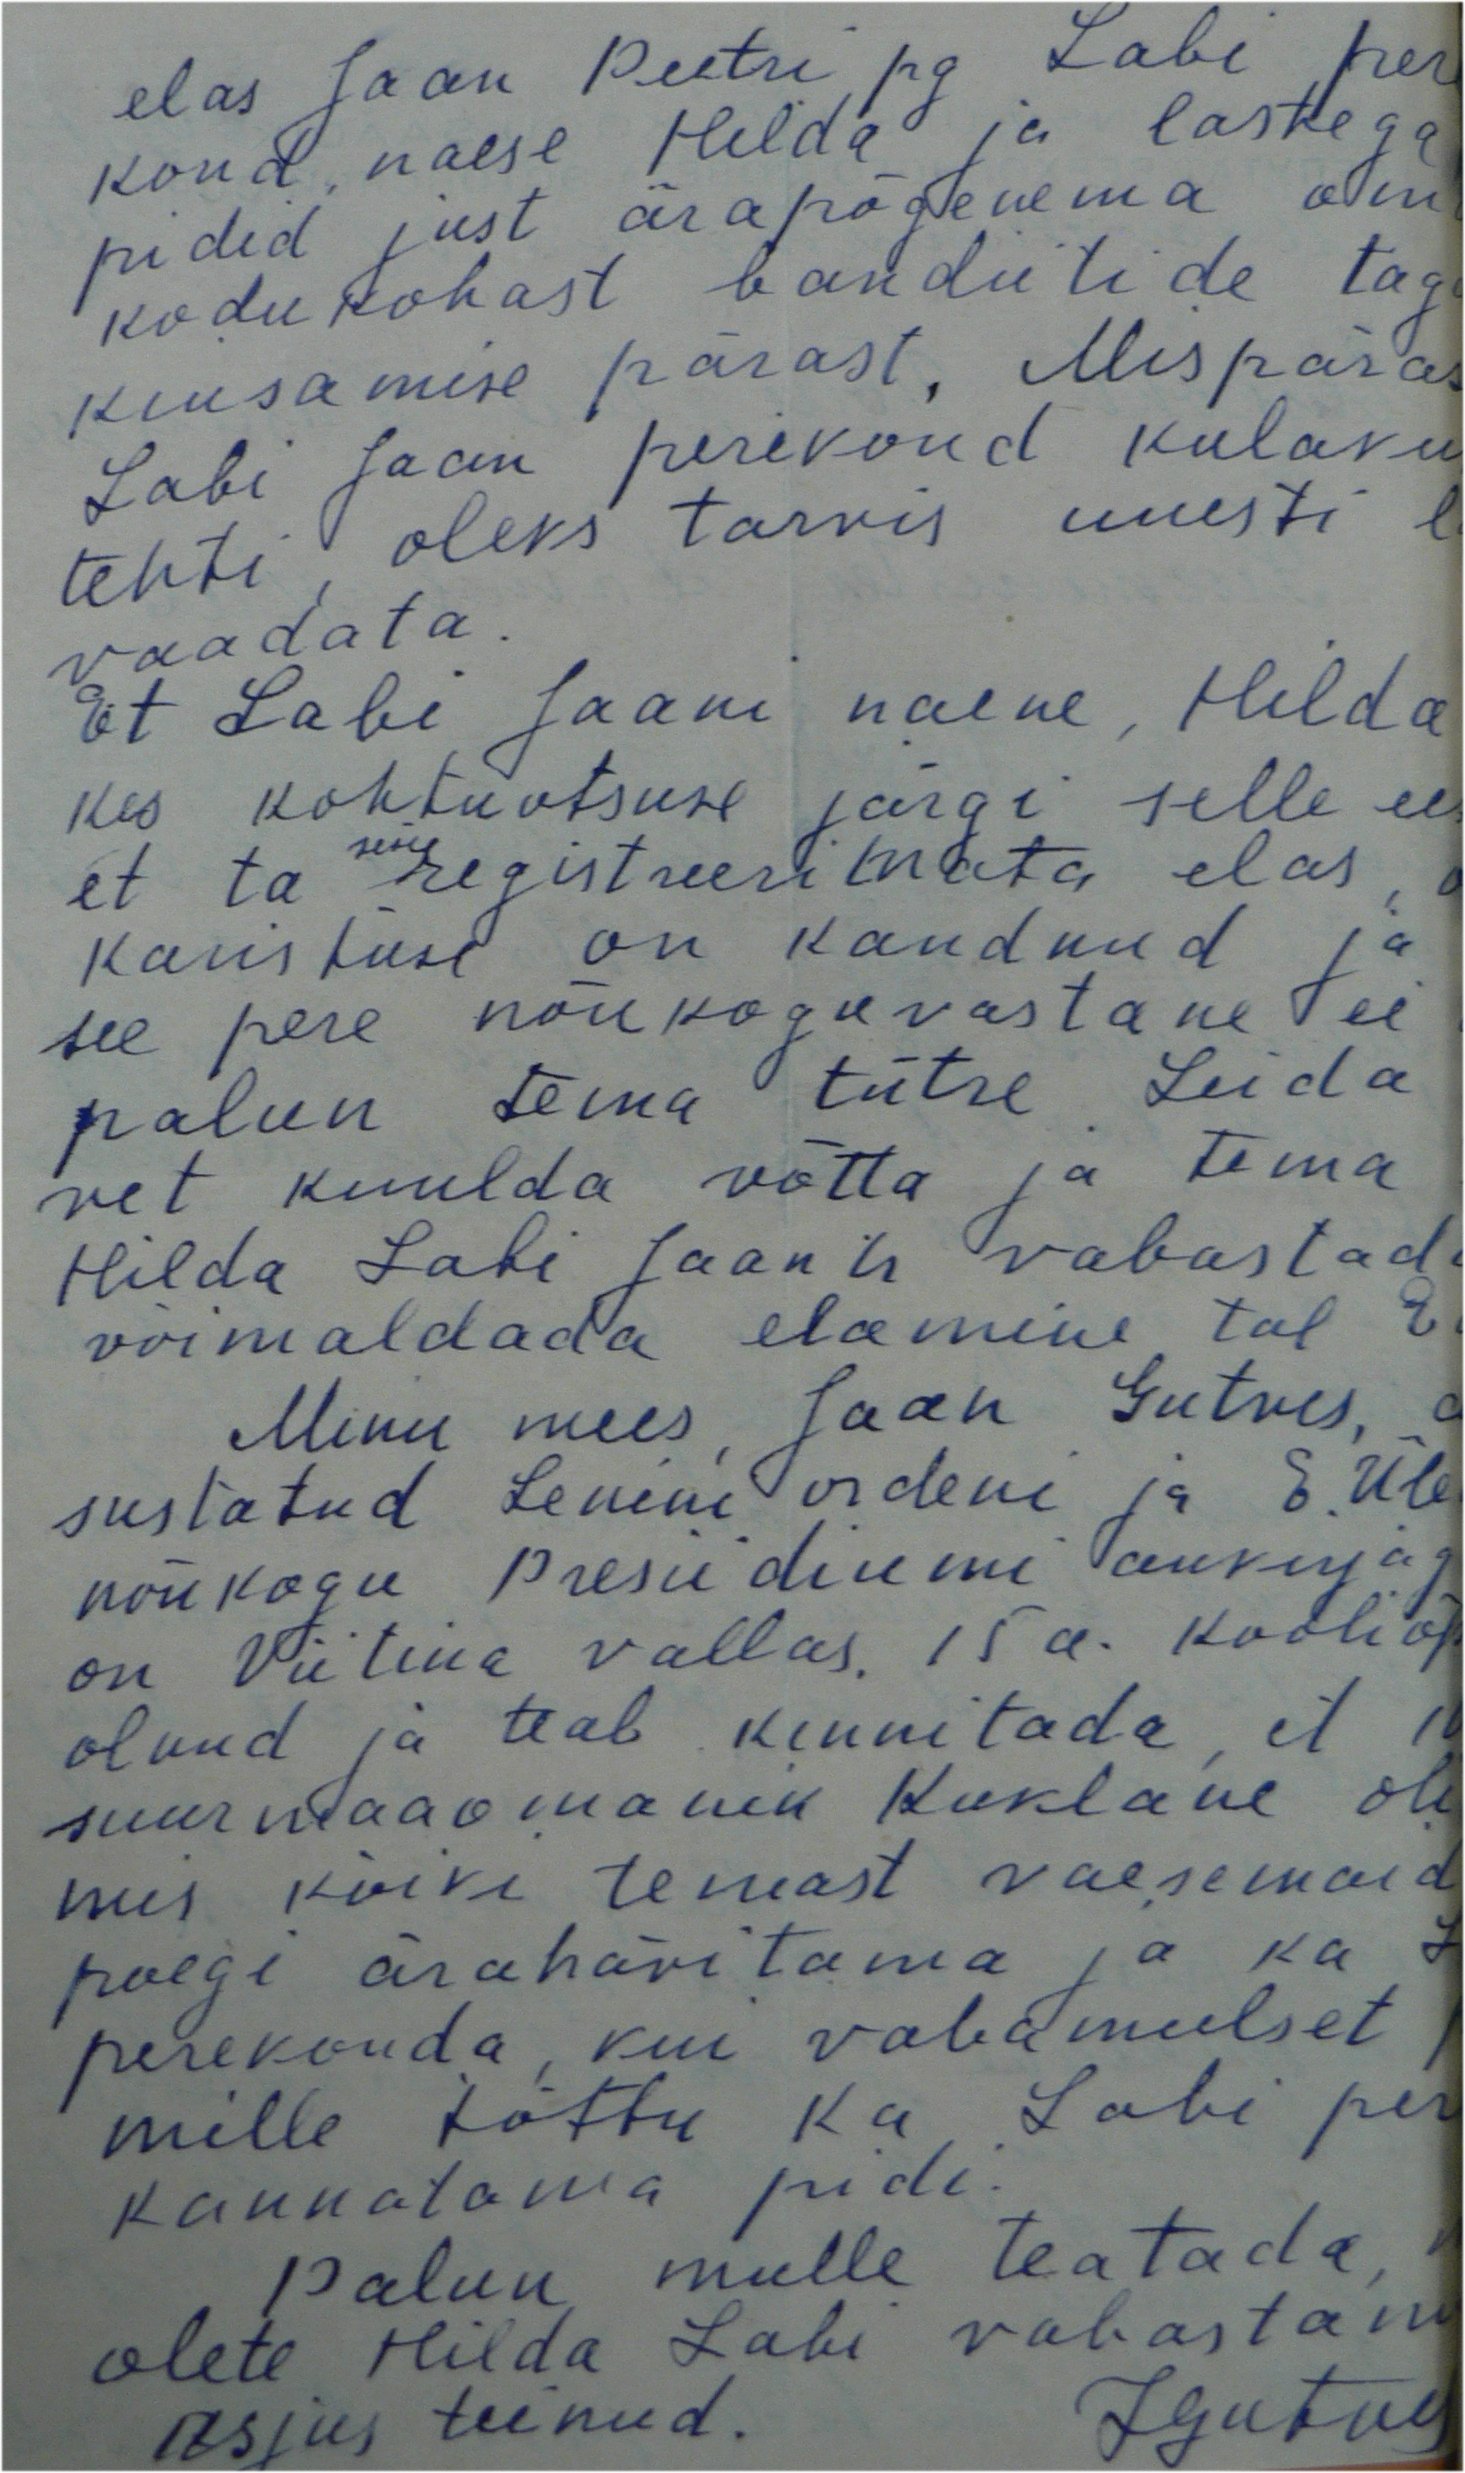 elas Jaan Peetri pg Labi pere
kond, naese Hilda ja lastega
pidid just ärapõgenema om
kodukohast bandiitide tag
kiusamise pärast. Mispäras
Labi Jaan perekond kulaku
tehti, oleks tarvis uuesti l
vaadata.
Et Labi Jaani naene, Hilda
kes kohtuotsuse järgi selle ee
et ta registreerimata elas,
karistuse on kandnud ja
see pere nõukoguvastane ei
palun tema tütre Leida
vet kuulda võtta ja tema
Hilda Labi Jaani tr vabastad
võimaldada elamine tal E
Minu mees, Jaan Gutves, a
sustatud Lenini ordeni ja E. Üle
nõukogu Presiidiumi aukirjag
on Viitina vallas. 15 a. kooliõp
olnud ja teab kinnitada, et
suurmaaomanik Kuklane oli
mis kõiki temast vaesemaid
poegi ärahävitama ja ka L
perekonda, kui vabameelset
mille tõttu ka Labi per
kannatama pidi.
Palun mulle teatada,
olete Hilda Labi vabastam
asjus teinud. JGutves